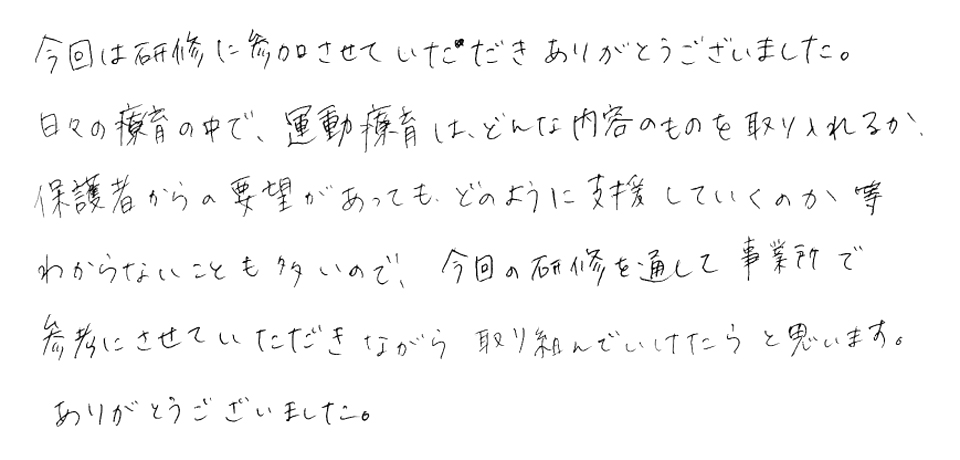 今回は研修に参加させていただだきありがとうございました。
日々の療育の中で、運動療育は、どんな内容のものを取り入れるか、
保護者からの要望があっても、どのように支援していくのか等
わからないことも多いので、今回の研修を通して事業所で
参考にさせていただきながら取り組んでいけたらと思います。
ありがとうございました。